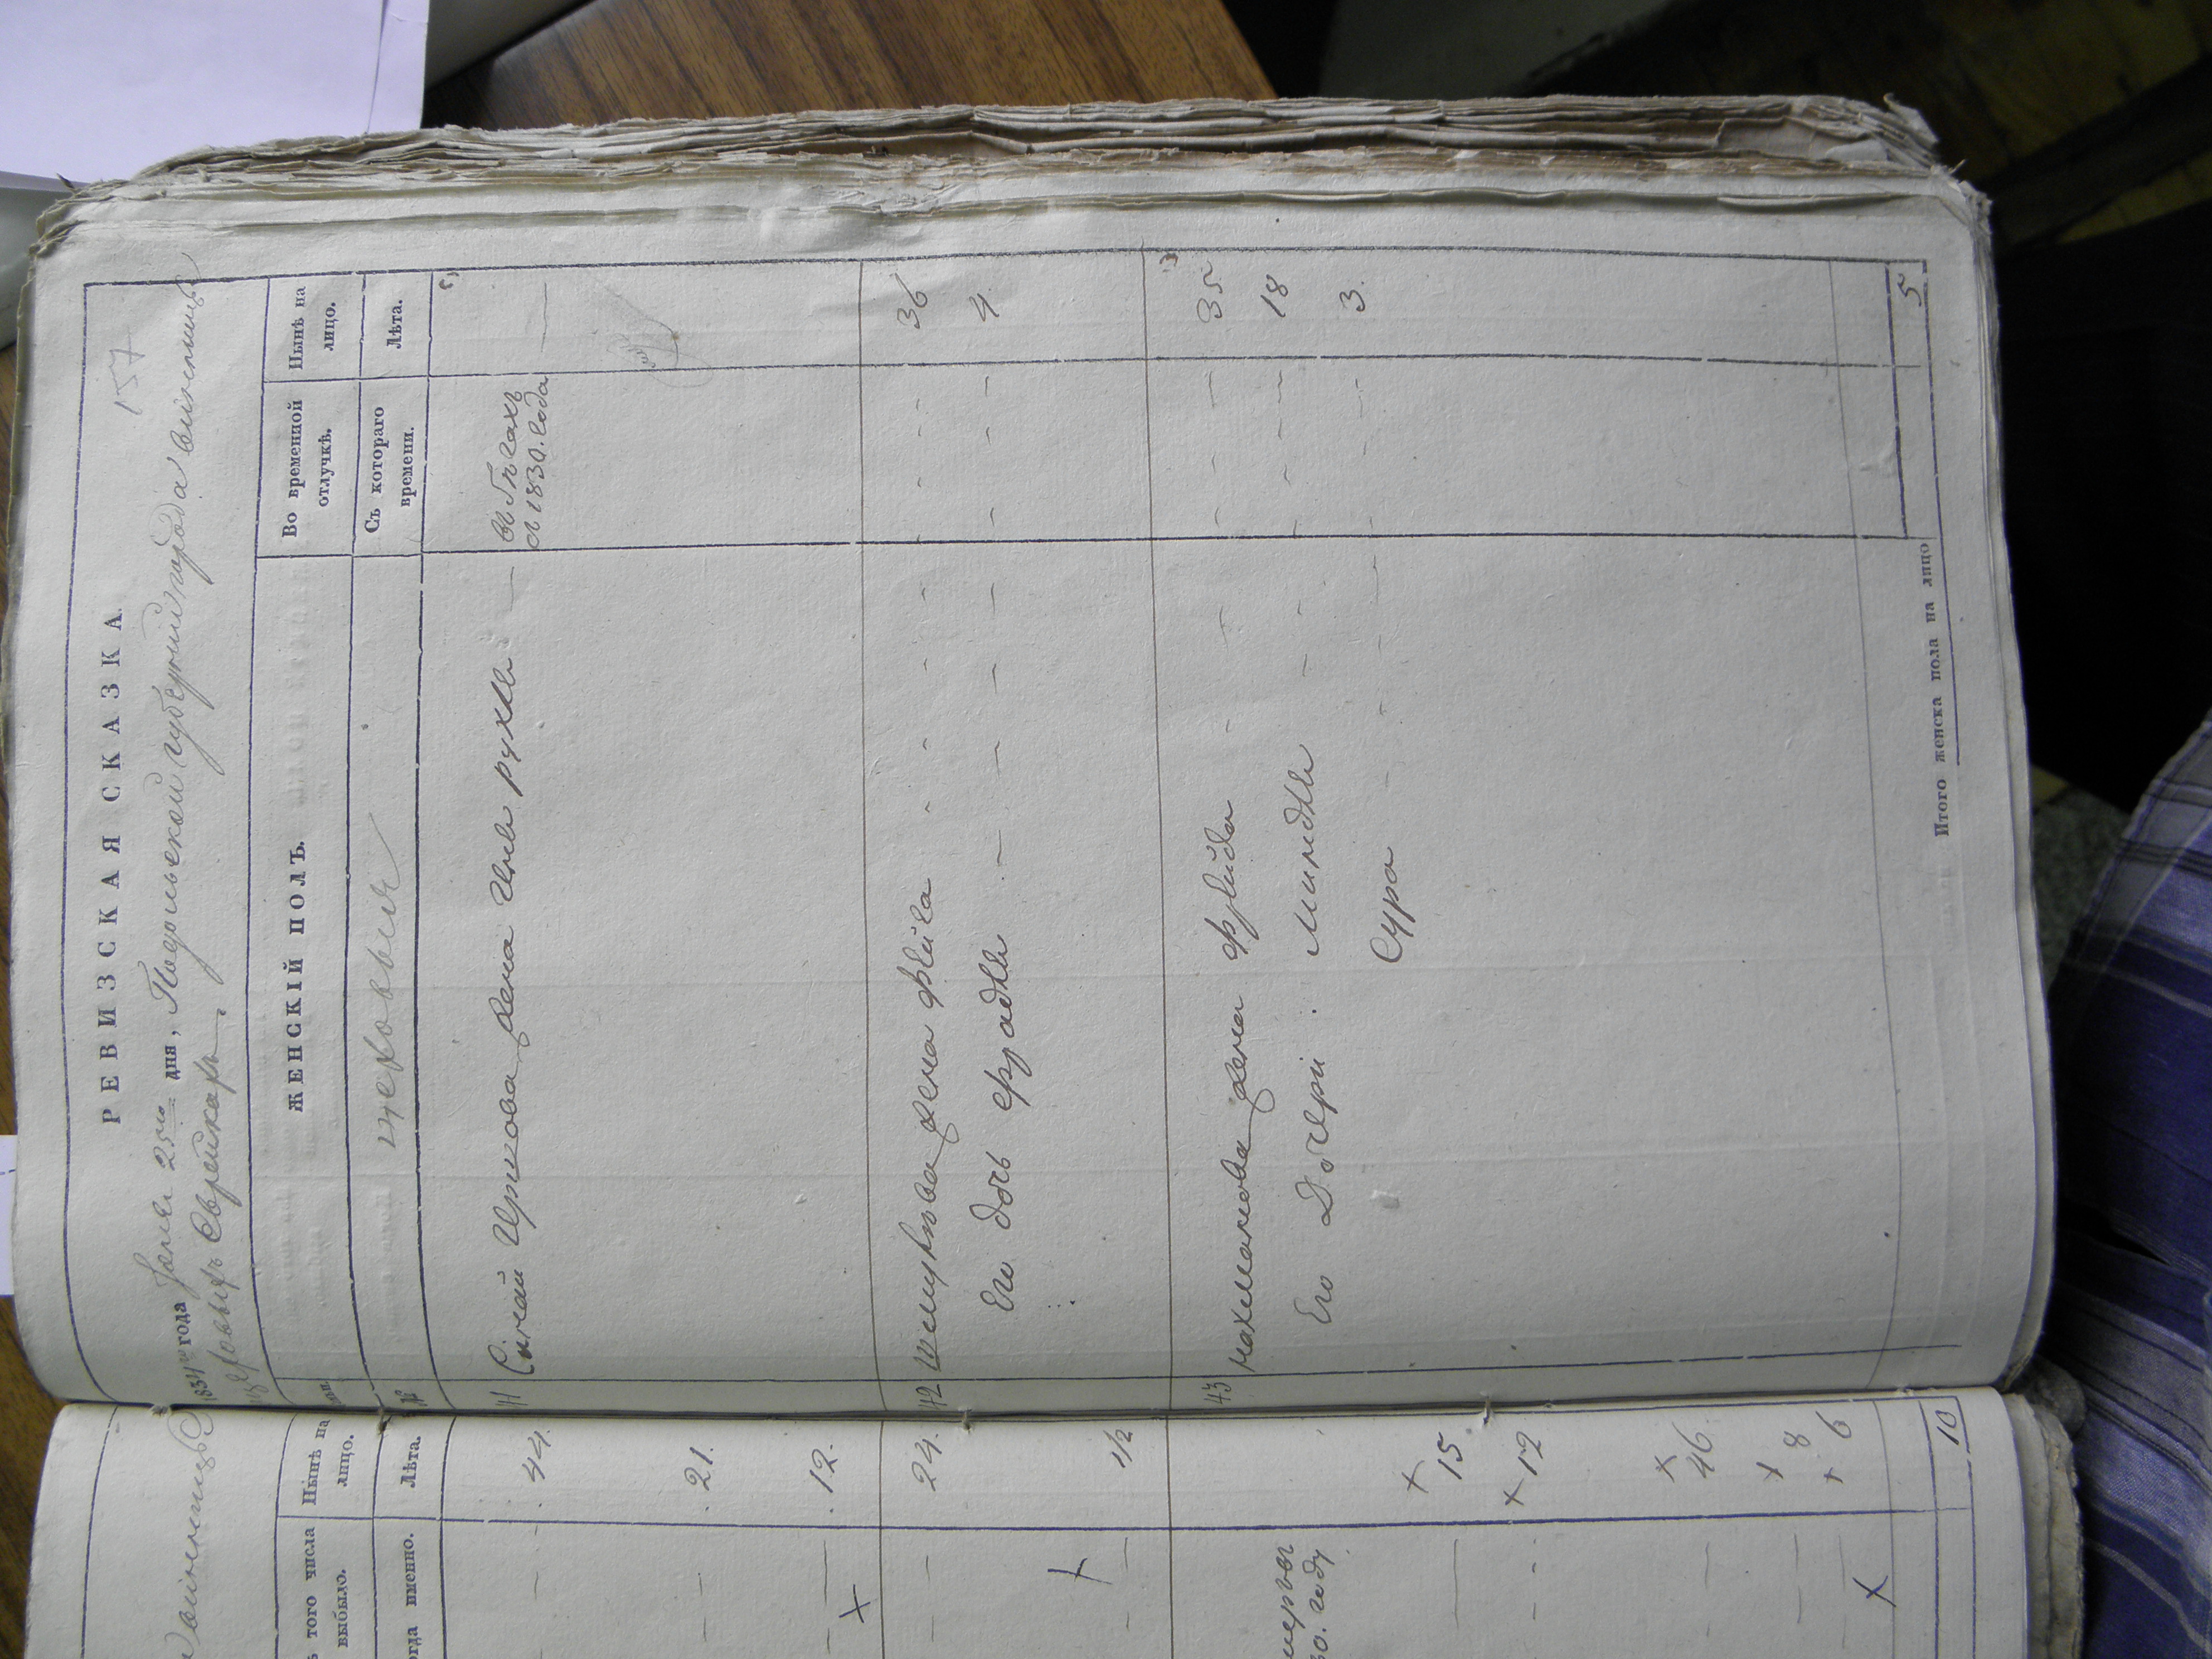 157
РЕВИЗСКАЯ СКАЗКА.
1834го года Іюня 25го дня, Подольской губерніи города Винницы
цеховыхъ Евреикахъ.
ЖЕНСКІЙ ПОЛЪ.
Во временной отлучкѣ.
Нынѣ на лицо.
цеховыя
№
Съ котораго времени.
Лѣта.
41 Сынаи Иршкова жена Ита рухля — въ бѣгахъ —
съ 1830. года
42 Шмулкова жена Фейга 36
Его дочь Фрадля 4
43 Нахмановa жена Фрейда 35
Его Дочери: Миндля 18
Сура 3.
Итого женска пола на лицо 5
Винницы
того числа выбыло.
Нынѣ на лицо.
когда именно.
Лѣта.
44.
21.
12.
24.
1/2
15.
12
46.
8
6
10